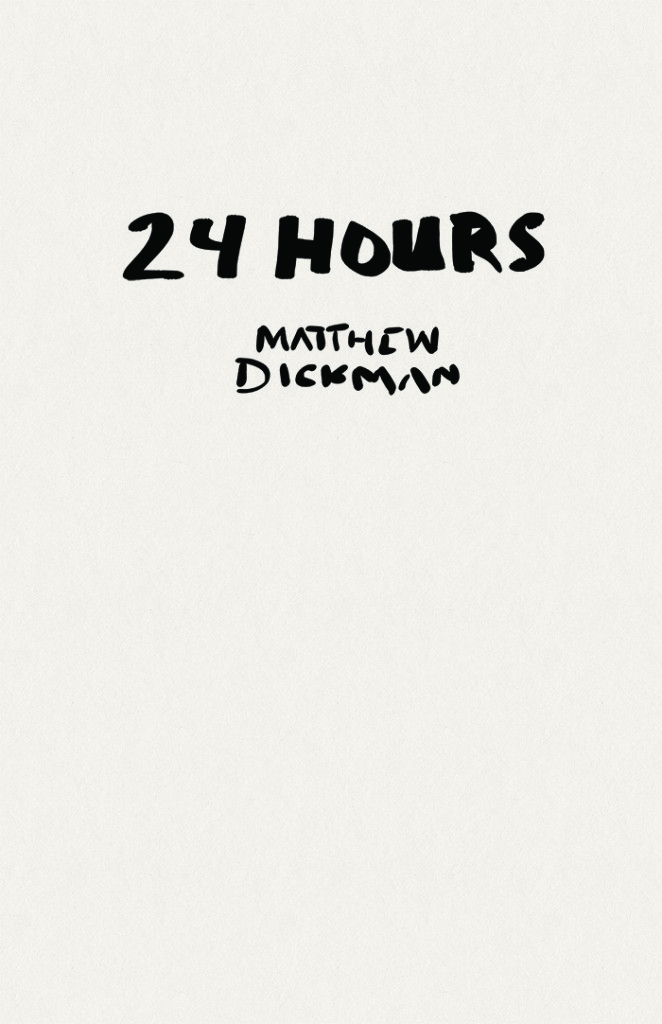 24 HOURS
MATTHEW
DICKMAN